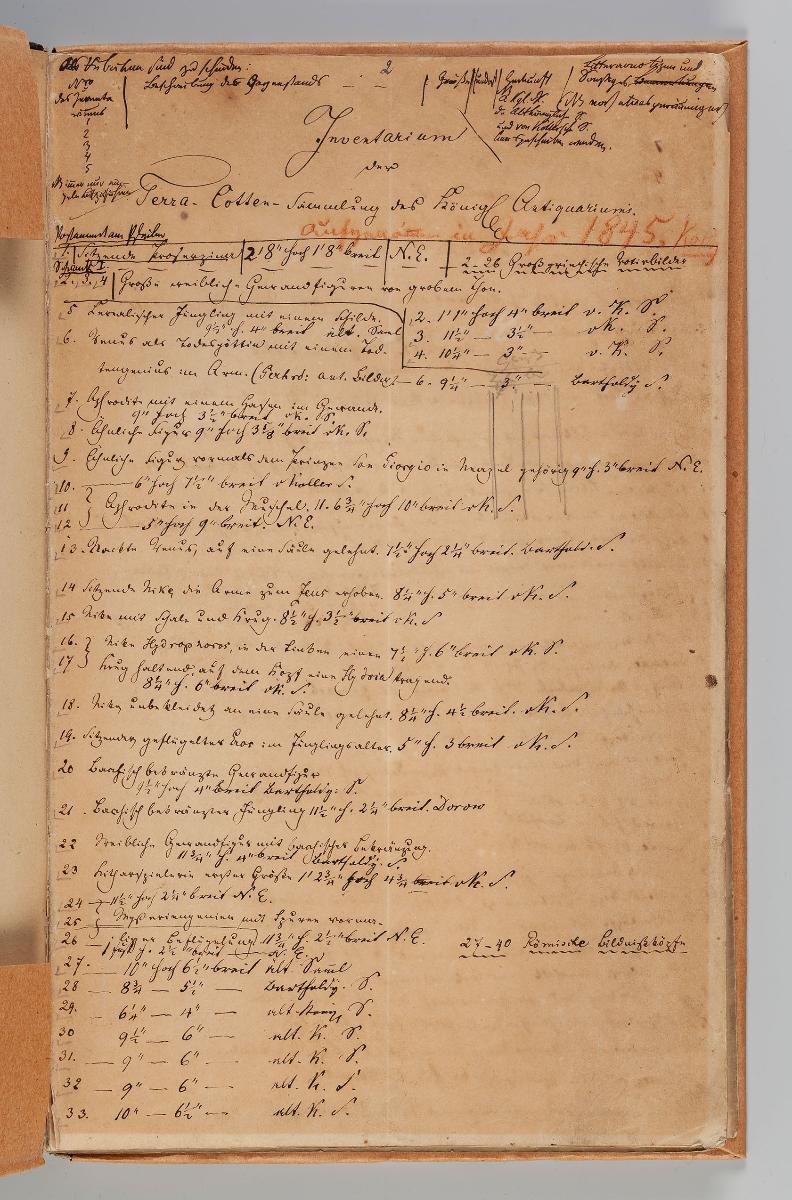 Als Rubriken sind zu scheiden:
2
Nro des Inventariums
1
2
3
4
5
Beschreibung des Gegenstands
Größe
Fundort
Herkunft
Inventarium
der
Terra-Cotten-Sammlung des Königl Antiquariums.
Aufgenommen im Jahr 1845.
Postament am Pfeiler
1. Sitzende Proserpina 2' 8" hoch 1' 8" breit N. E.
2-26 Großgriechische Votivbilder
Schrank I.
2. 3. 4 Große weibliche Gewandfiguren von grobem Thon.
2. 1' 1" hoch 4" breit v. K. S.
3. 11½" — 3½" — v K. S.
4. 10¼" — 3" — v. K. S.
5 Cerealischer Jüngling mit einem Schilde.
9½" h. 4" breit alt. Saml
6. Venus als Todesgöttin mit einem Tod-
tengenius im Arm. (Gerhard: ant. Bildw — 6. 9¼" — 3" — Bartholdy S.
7. Aphrodite mit einem Hasen im Gewande.
9" hoch 3½" breit v K. S.
8. Ähnliche Figur 9" hoch 3¼" breit v K. S.
9. Ähnliche Figur vormals dem Prinzen San Giorgio in Neapel gehörig 9" h. 3" breit N. E.
10. — 6" hoch 7½" breit v Koller S.
11 Aphrodite in der Muschel. 11. 6¾" hoch 10" breit v K. S.
12 — 5" hoch 9" breit. N. E.
13. Nackte Venus, auf eine Säule gelehnt. 7½" hoch 2¼" breit. Barthold. S.
14 Sitzende Nike die Arme zum Zeus erhoben. 8¼" h. 5" breit v K. S.
15 Nike mit Schale und Krug. 8½" h. 3½" breit v K. S
16. Nike Hydrophoros, in der Linken einen 7½" h. 6" breit v K. S.
17 Krug haltend, auf dem Kopf eine Hydria tragend.
8¼" h. 6" breit v K. S.
18. Nike unbekleidet an eine Säule gelehnt. 8¼" h. 4½ breit. v K. S.
19. Sitzender geflügelter Eros im Jünglingsalter. 5" h. 3 breit v K. S.
20 Bacchisch bekränzte Gewandfigur
9½" hoch 4" breit Bartholdy: S.
21. Bacchisch bekränzter Jüngling 11½" h. 2¼" breit. Dorow
22 Weibliche Gewandfigur mit bacchischer Bekränzung.
11¾" h. 4" breit Bartholdy. S
23 Kitharspielerin erster Größe 1' 2¾" hoch 4¾ breit v K. S.
24 — 11½" hoch 2¼" breit N. E.
25 Mysteriengenien mit Spuren vorma-
26 — liger Beflügelung 11¾" h. 2½" breit N. E.
27-40 Römische Bildnißköpfe
27. — 10" hoch 6½" breit alt Saml
28 — 8¾ — 5½" — Bartholdy. S.
29. — 6¼" — 4" — alt König S.
30 9½" — 6" — alt. K. S.
31. — 9" — 6" — alt. K. S.
32 — 9" — 6" — alt. K. S.
33. 10" — 6½" — alt. K. S.